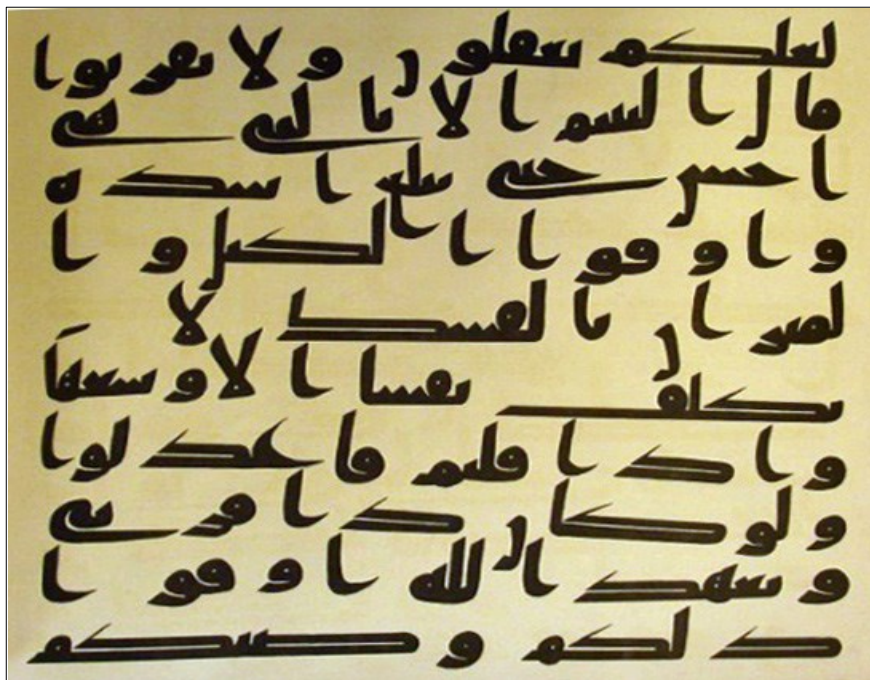 لعلكم تعقلون ولا تقربوا
مال اليتيم الا بالتي هي
احسن حتى يبلغ اشده
واوفوا الكيل وا
لميزان بالقسط لا
نكلف نفسا الا وسعها
واذا قلتم فاعدلوا
ولو كان ذا قربى
وبعهد الله اوفوا
ذلكم وصيكم